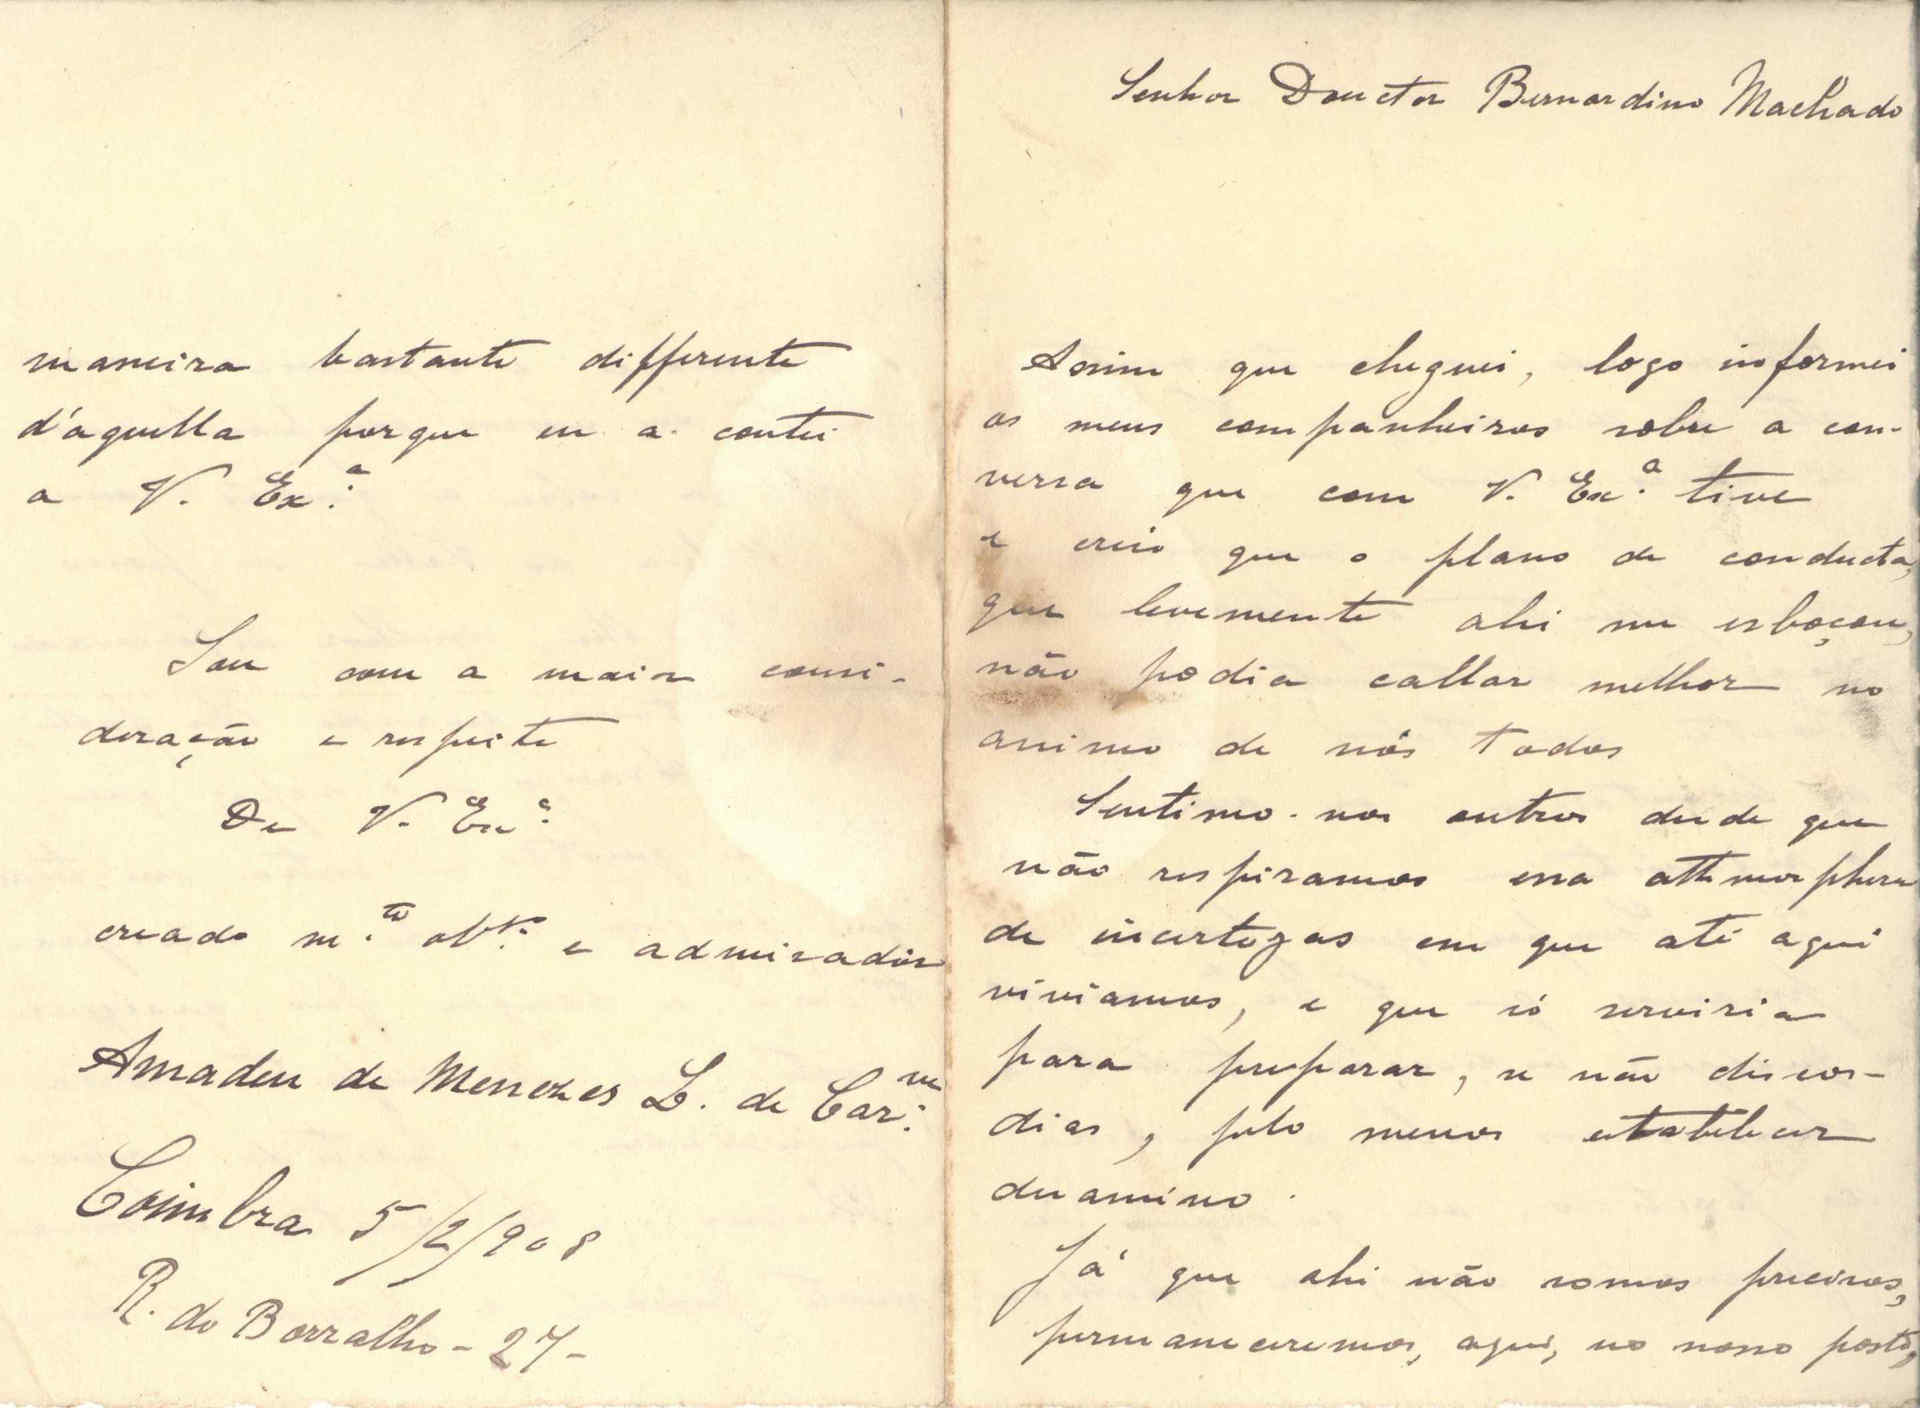 Senhor Douctor Bernardino Machado
Assim que cheguei, logo informei
os meus companheiros sobre a con-
versa que com V. Ex.ª tive
e creio que o plano de conducta,
que levemente ahi me esboçou,
não podia callar melhor no
animo de nós todos
Sentimo-nos outros desde que
não respiramos essa athmosphera
de incertezas em que até aqui
viviamos, e que só serviria
para preparar, se não discor-
dias, pelo menos estabelecer
desanimo.
Já que ahi não somos precisos,
permaneceremos, aqui, no nosso posto,
maneira bastante differente
d'aquella porque eu a contei
a V. Ex.ª
Sou com a maior consi-
deração e respeito
De V. Ex.ª
creado m.to ob.º e admirador
Amadeu de Menezes L. de Car.
Coimbra 5/2/908
R. do Borralho - 27 -